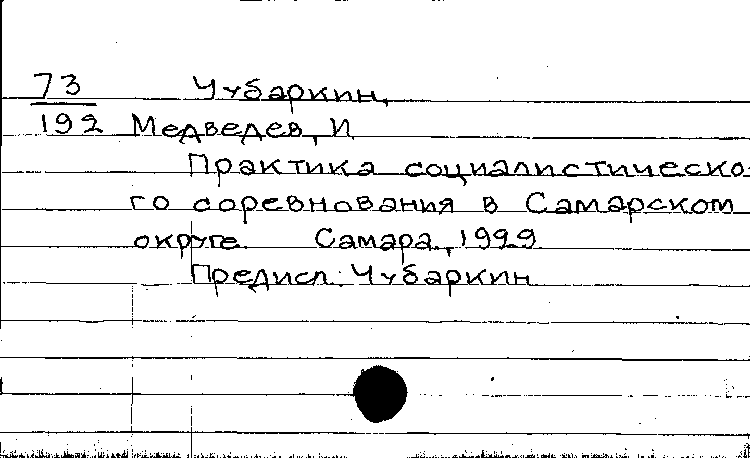 73 Чубаркин,
192 Медведев, И
Практика социалистическо-
го соревнования в Самарском
округе. Самара, 1929
Предисл: Чубаркин